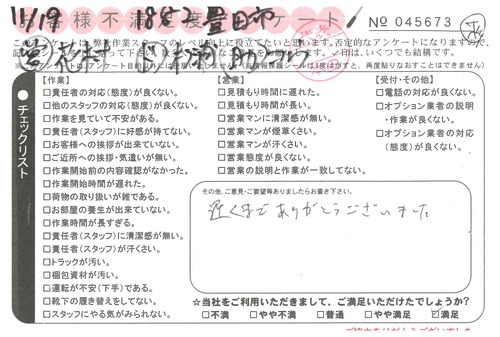 お客様不満足度アンケート!
11/19 1852 豊田市
No 045673
このアンケートは、弊社作業スタッフのレベル向上に役立てたいと思います。否定的なアンケートになりますので、
【作業】
□責任者の対応(態度)が良くない。
□他のスタッフの対応(態度)が良くない。
□作業を見ていて不安がある。
□責任者(スタッフ)に好感が持てない。
□お客様への挨拶が出来ていない。
□ご近所への挨拶・気遣いが無い。
□作業開始前の内容確認がなかった。
□作業開始時間が遅れた。
□荷物の取り扱いが雑である。
□お部屋の養生が出来ていない。
□作業時間が長すぎる。
□責任者(スタッフ)に清潔感が無い。
□責任者(スタッフ)が汗くさい。
□トラックが汚い。
□梱包資材が汚い。
□運転が不安(下手)である。
□靴下の履き替えをしてない。
□スタッフにやる気がみられない。
【営業】
□見積もり時間に遅れた。
□見積もり時間が長い。
□営業マンに清潔感が無い。
□営業マンが煙草くさい。
□営業マンが汗くさい。
□営業態度が良くない。
□営業の説明と作業が一致してない。
【受付・その他】
□電話の対応が良くない。
□オプション業者の説明
・作業が良くない。
□オプション業者の対応
(態度)が良くない。
チェックリスト
その他、ご意見・ご要望等ありましたらお書き下さい。
遅くまでありがとうございました
☆当社をご利用いただきまして、ご満足いただけたでしょうか?
□不満 □やや不満 □普通 □やや満足 ☑満足
ご協力ありがとうございました